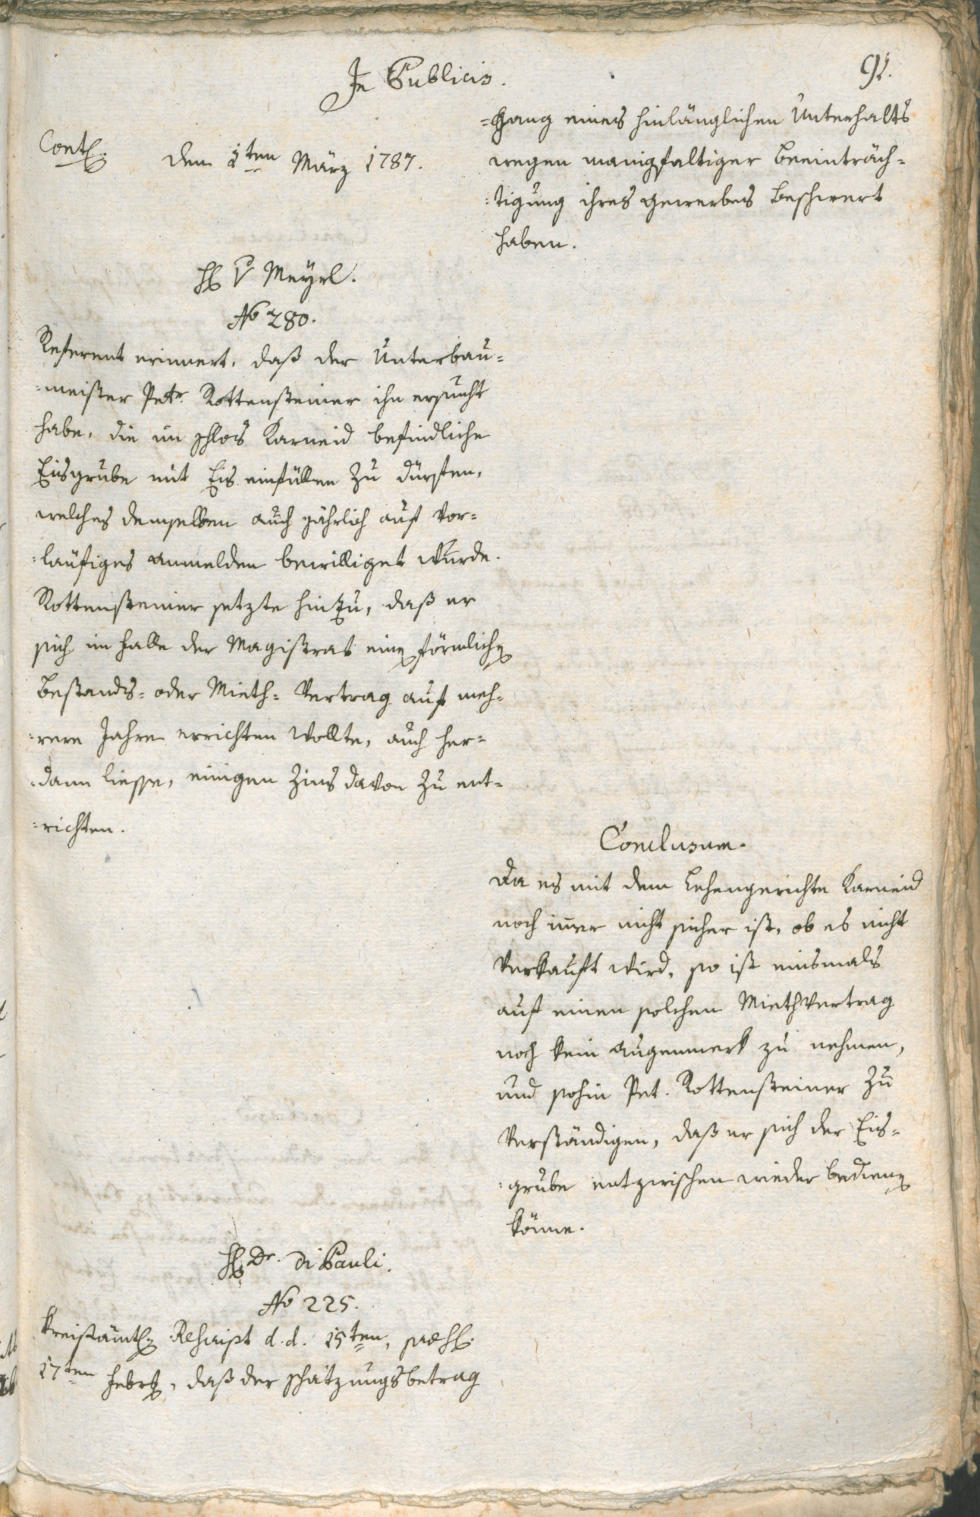 In Publicis.
91.
Cont.
den 1ten März 1787.
H. v Meÿrl.
No 280.
Referent erinnert, daß der Unterbau-
-meister Petr. Rottensteiner ihn ersucht
habe, die im schlos Karneid befindliche
Eisgrube mit Eis einfüllen zu dürften,
welches demselben auch jährlich auf vor-
läufiges anmelden bewilliget wurde.
Rottensteiner setzte hinzu, daß er
sich im Falle der Magistrat einen förmlichen
Bestands- oder Mieth- Vertrag auf meh-
-rere Jahre errichten wollte, auch her-
dann liesse, einigen Zins davon zu ent-
-richten.
H. Dr. Di Pauli.
No 225.
Kreisämtl. Rescript d. d. 15ten, praes.
17ten Febr., daß der schätzungsbetrag
-gang eines hinlänglichen Unterhalts
wegen manigfaltiger Beeinträch-
-tigung ihres gewerbes beschwert
haben.
Conclusum.
Da es mit dem Lehengerichte Karneid
noch immer nicht sicher ist, ob es nicht
verkauft wird, so ist einsmals
auf einen solchen Miethvertrag
noch kein augenmerk zu nehmen,
und sohin Pet. Rottensteiner zu
verständigen, daß er sich der Eis-
-grube entzwischen wieder bedienen
könne.